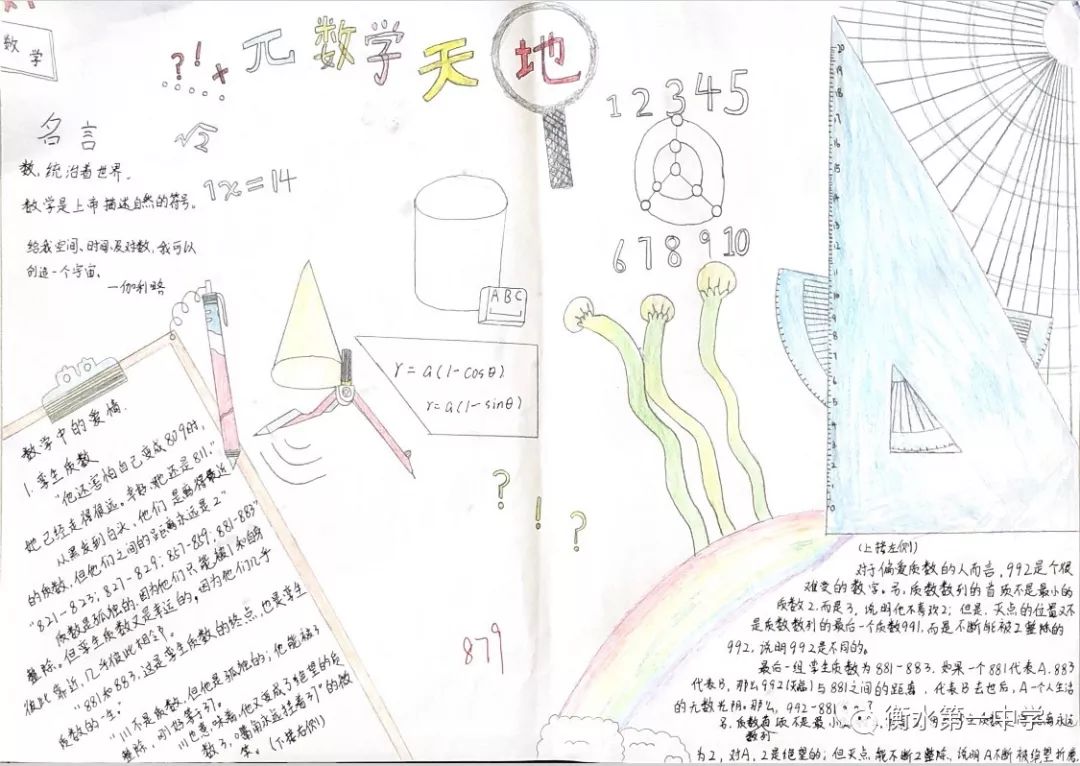 数
学
?!+
兀数学天地
名言
√2
数,统治着世界。
1x=14
数学是上帝描述自然的符号。
给我空间、时间及对数,我可以
创造一个宇宙。
—伽利略
1 2 3 4 5
6 7 8 9 10
A B C
r=a(1-cosθ)
r=a(1-sinθ)
数学中的爱情.
1.孪生质数
"他还害怕自己变成809时,
她已经走得很远。幸好,她还是811."
从黑发到白头,他们是离得最近
的质数,但他们之间的距离永远是2"
"821-823;827-829;857-859;881-883"
质数是孤独的,因为他们只能被1和自身
整除。但孪生质数又是幸运的,因为他们几乎
彼此靠近,几为彼此相守。
"881和883,这是孪生质数的终点,也是孪生
质数的一生."
"111不是质数,但他是孤独的;他能被3
整除,刚好等于37.
111也意味着,他又变成了绝望的质
数3,嘴角永远挂着37°的微
笑。(下接右侧)
? ! ?
879
20
19
18
17
16
15
14
13
12
11
10
9
8
7
6
5
4
3
2
1
0
(上接左侧)
对于偏爱质数的人而言,992是个很
难受的数字。另,质数数列的首项不是最小的
质数2,而是3,说明他不喜欢2;但是,灭点的位置又不
是质数数列的最后一个质数991,而是不断能被2整除的
992,说明992是不同的。
最后一组孪生质数为881-883.如果一个881代表A.883
代表B,那么992(灭点)与881之间的距离,代表B去世后,A一个人生活
的无数光阴.那么,992-881=?
另,质数首项不是最小
数列
为2,对A,2是绝望的;但灭点,能不断2整除,说明A不断被绝望折磨
衡水第一中学